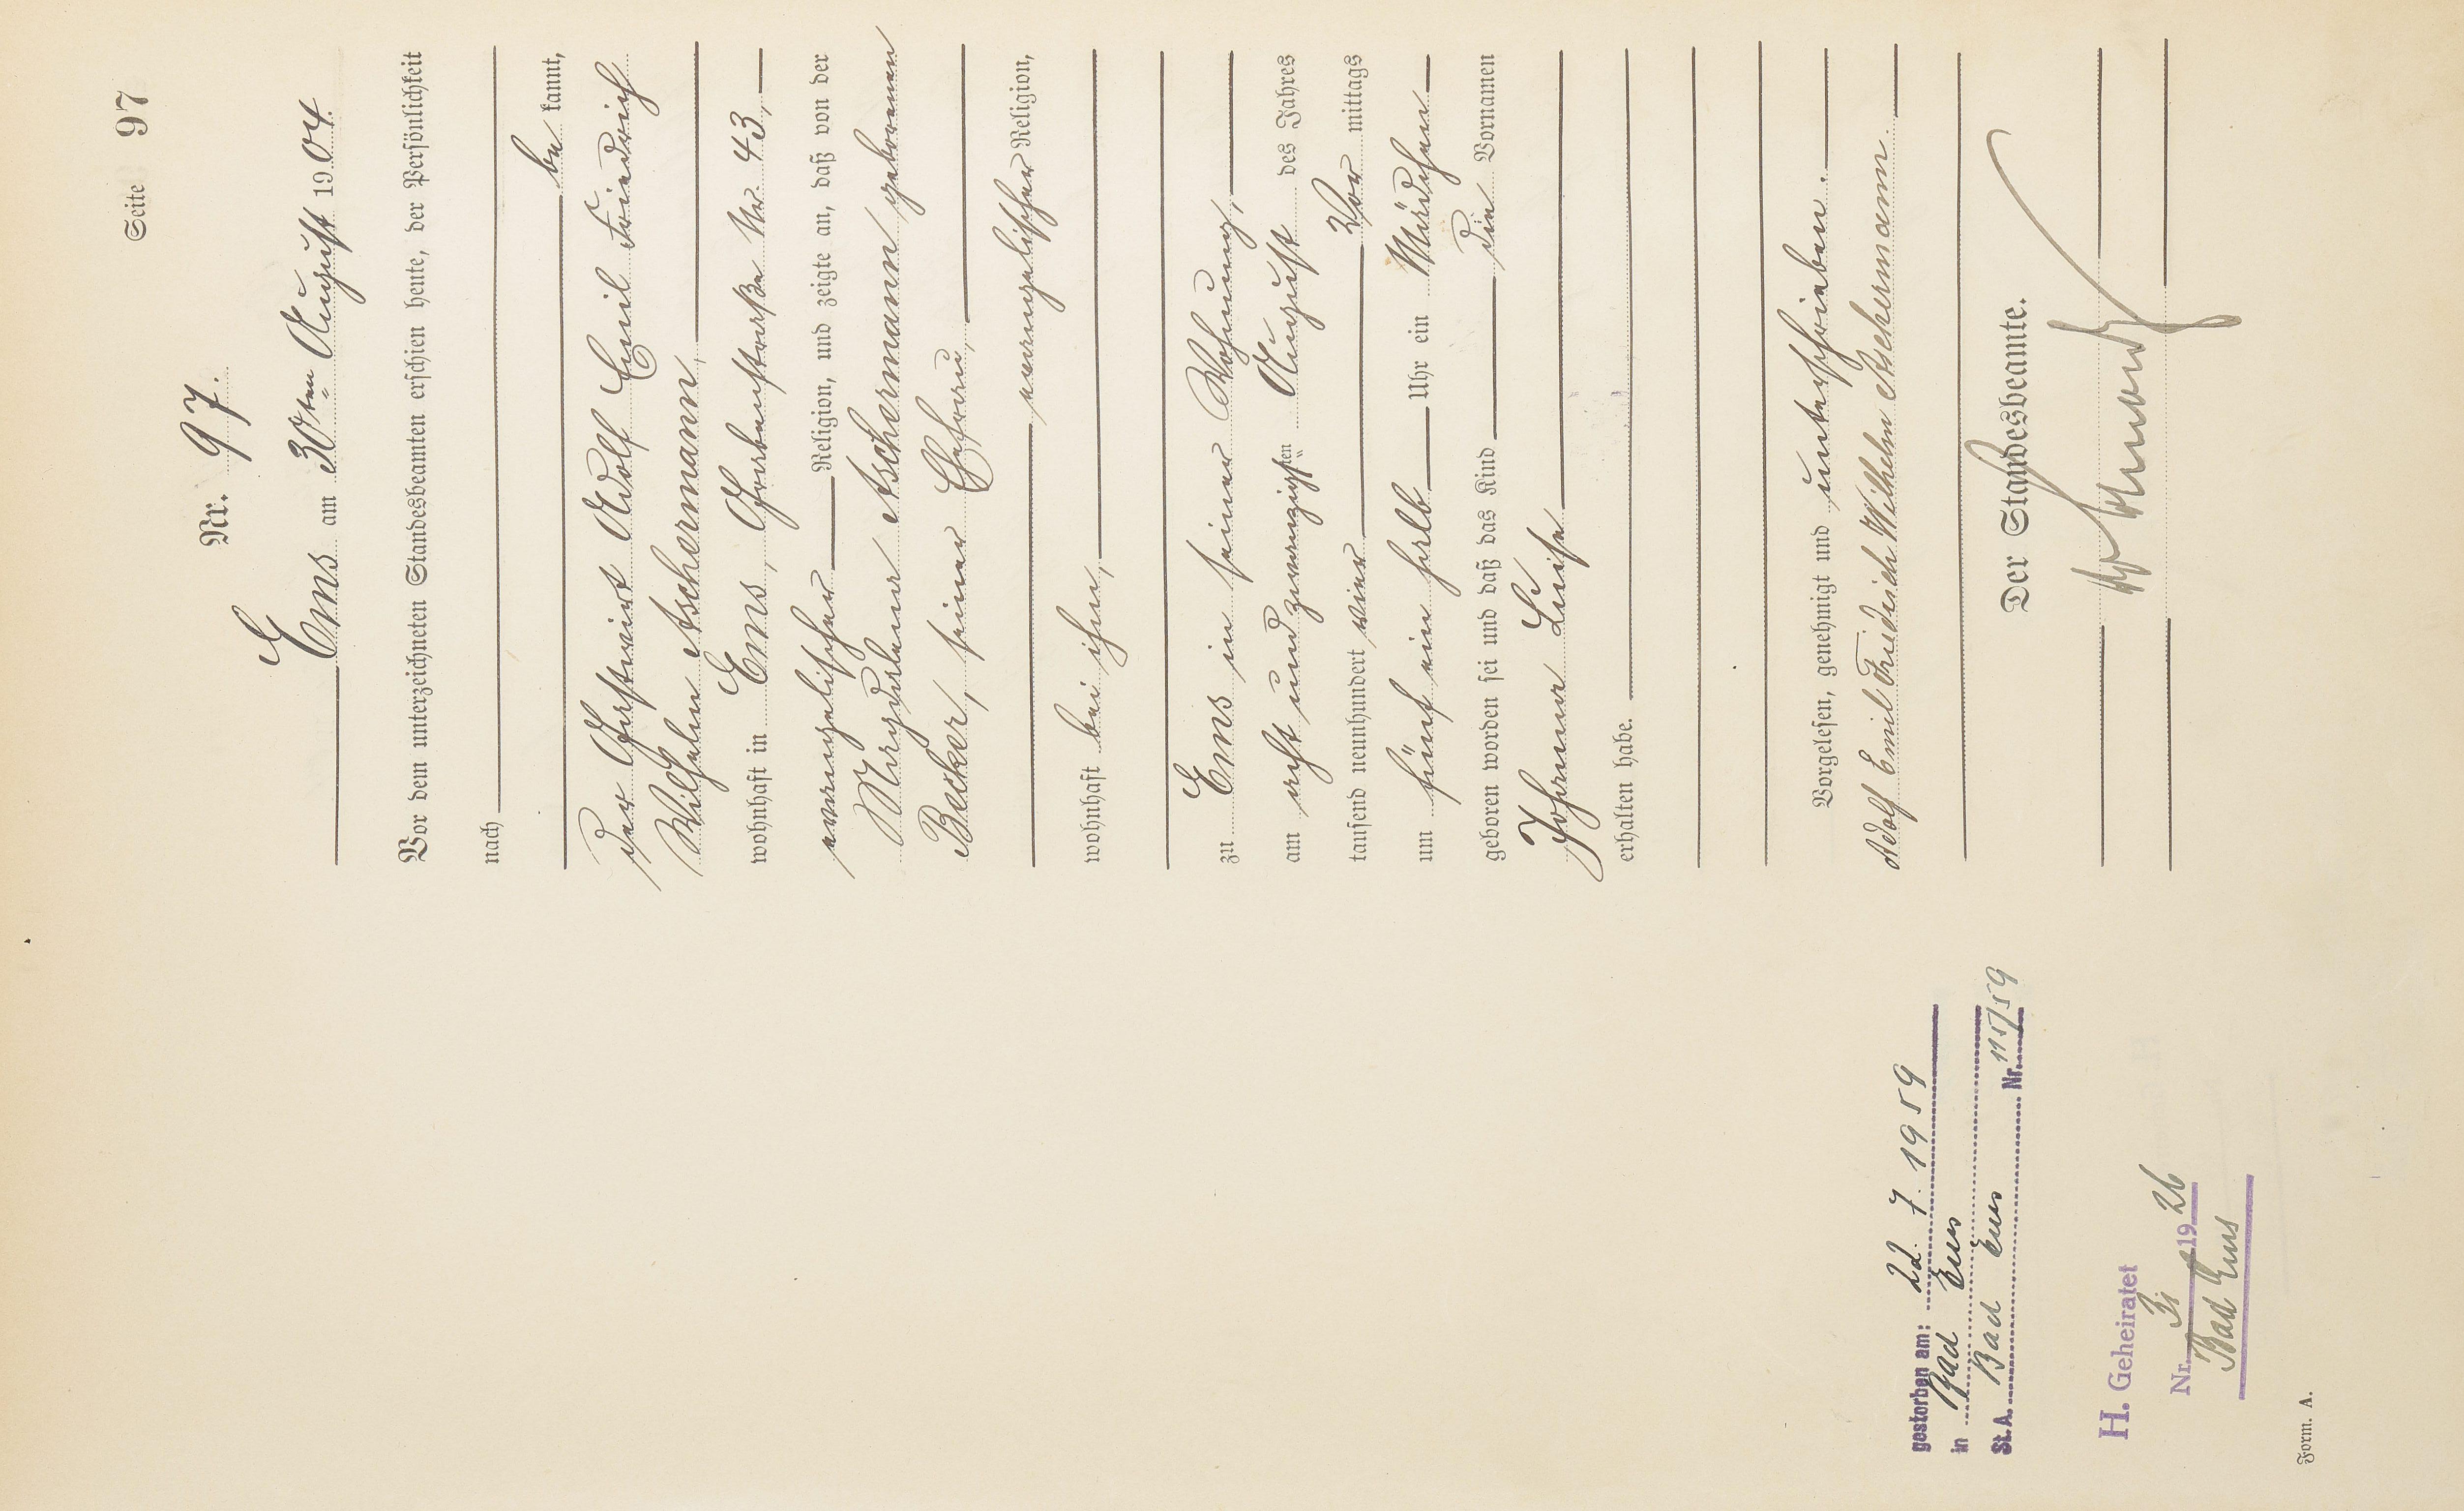 Seite 97
Nr. 97.
Ems am 30ten August 1904.
Vor dem unterzeichneten Standesbeamten erschien heute, der Persönlichkeit
nach
be kannt,
der Gastwirt Adolf Emil Friedrich
Wilhelm Aschermann,
wohnhaft in Ems, Grabenstraße Nr. 43,
evangelischer Religion, und zeigte an, daß von der
Magdalena Aschermann geborenen
Becker, seiner Ehefrau,
evangelischer Religion,
wohnhaft bei ihm,
zu Ems in seiner Wohnung,
am acht und zwanzigsten August des Jahres
tausend neunhundert vier Vor mittags
um fünf ein halb Uhr ein Mädchen
geboren worden sei und daß das Kind die Vornamen
Johanna Luise
erhalten habe.
Vorgelesen, genehmigt und unterschrieben.
Adolf Emil Friedrich Wilhelm Aschermann.
Der Standesbeamte.
gestorben am: 22. 7. 1959
in Bad Ems
St.A. Bad Ems Nr. 115/59
H. Geheiratet
Nr. 31 1926
Bad Ems
Form. A.